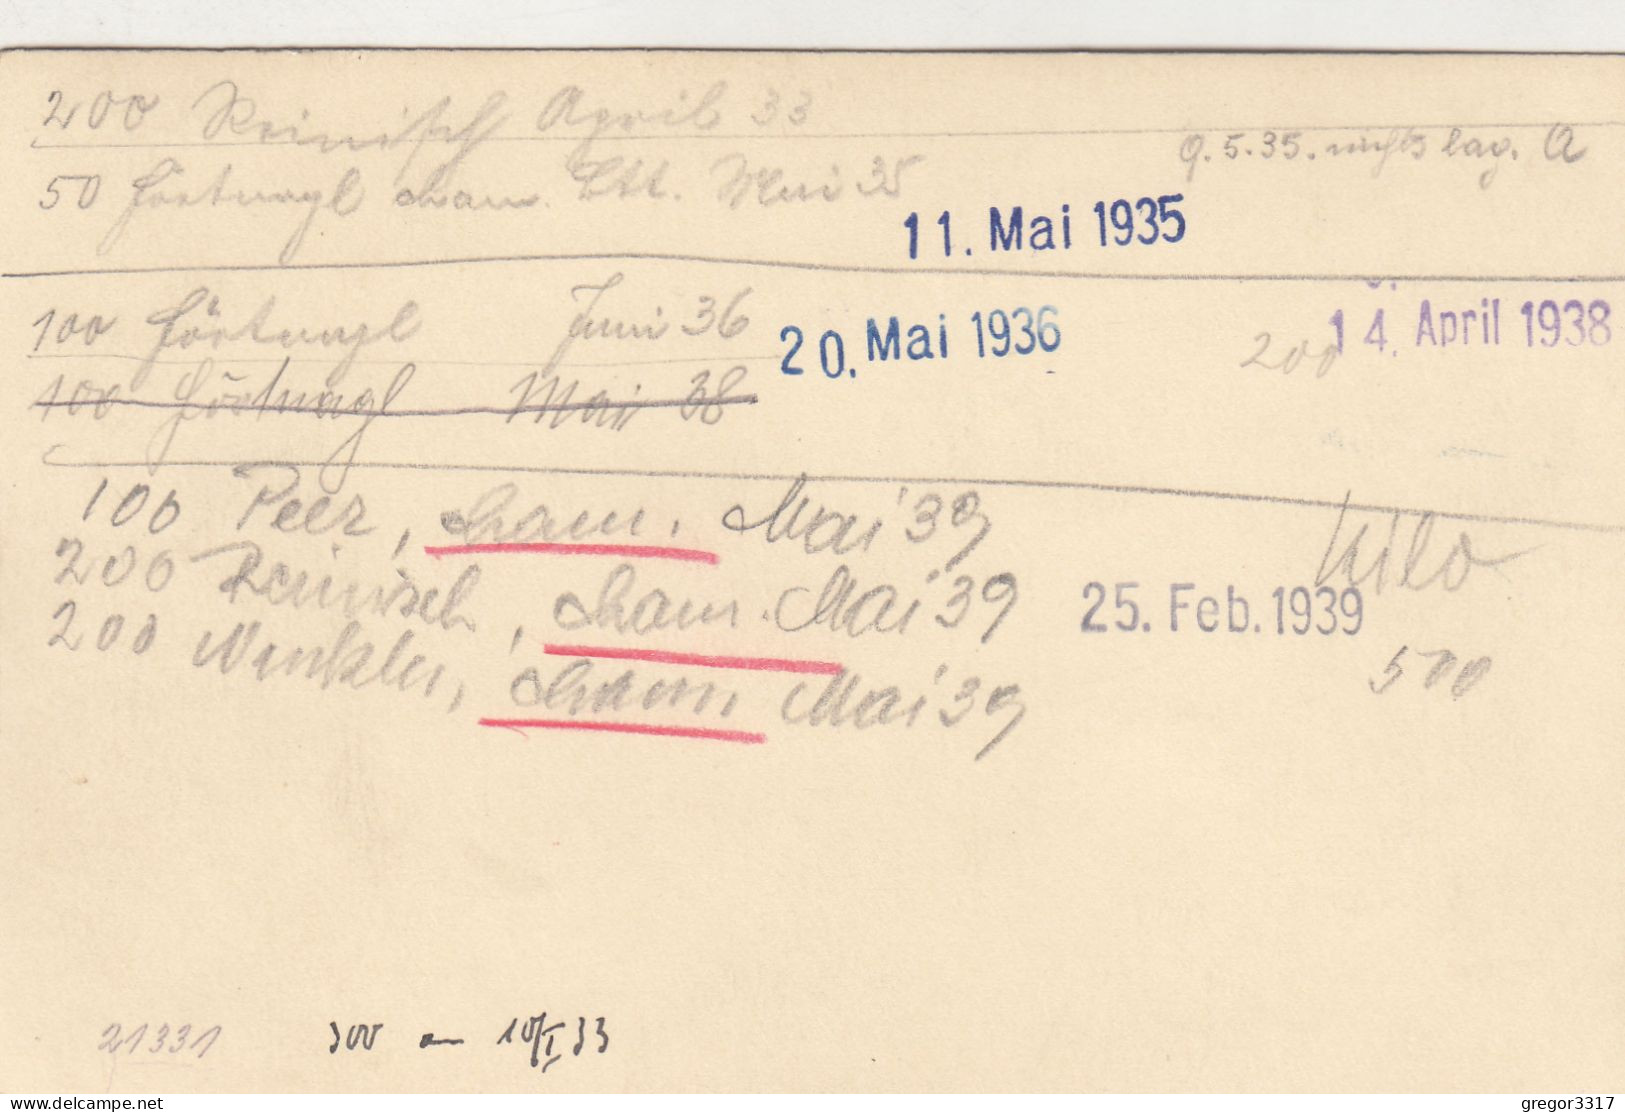 200 Reinisch April 33
9.5.35. nichts lag. A
50 Förtnagl cham. Mai 35
11. Mai 1935
100 Förtnagl Juni 36
20. Mai 1936
200
14. April 1938
100 Förtnagl Mai 38
100 Peer, cham. Mai 39
200 Reinisch, cham. Mai 39
25. Feb. 1939
200 Winkler, cham. Mai 39
500
21331
300 am 10/I 33
www.delcampe.net
gregor3317